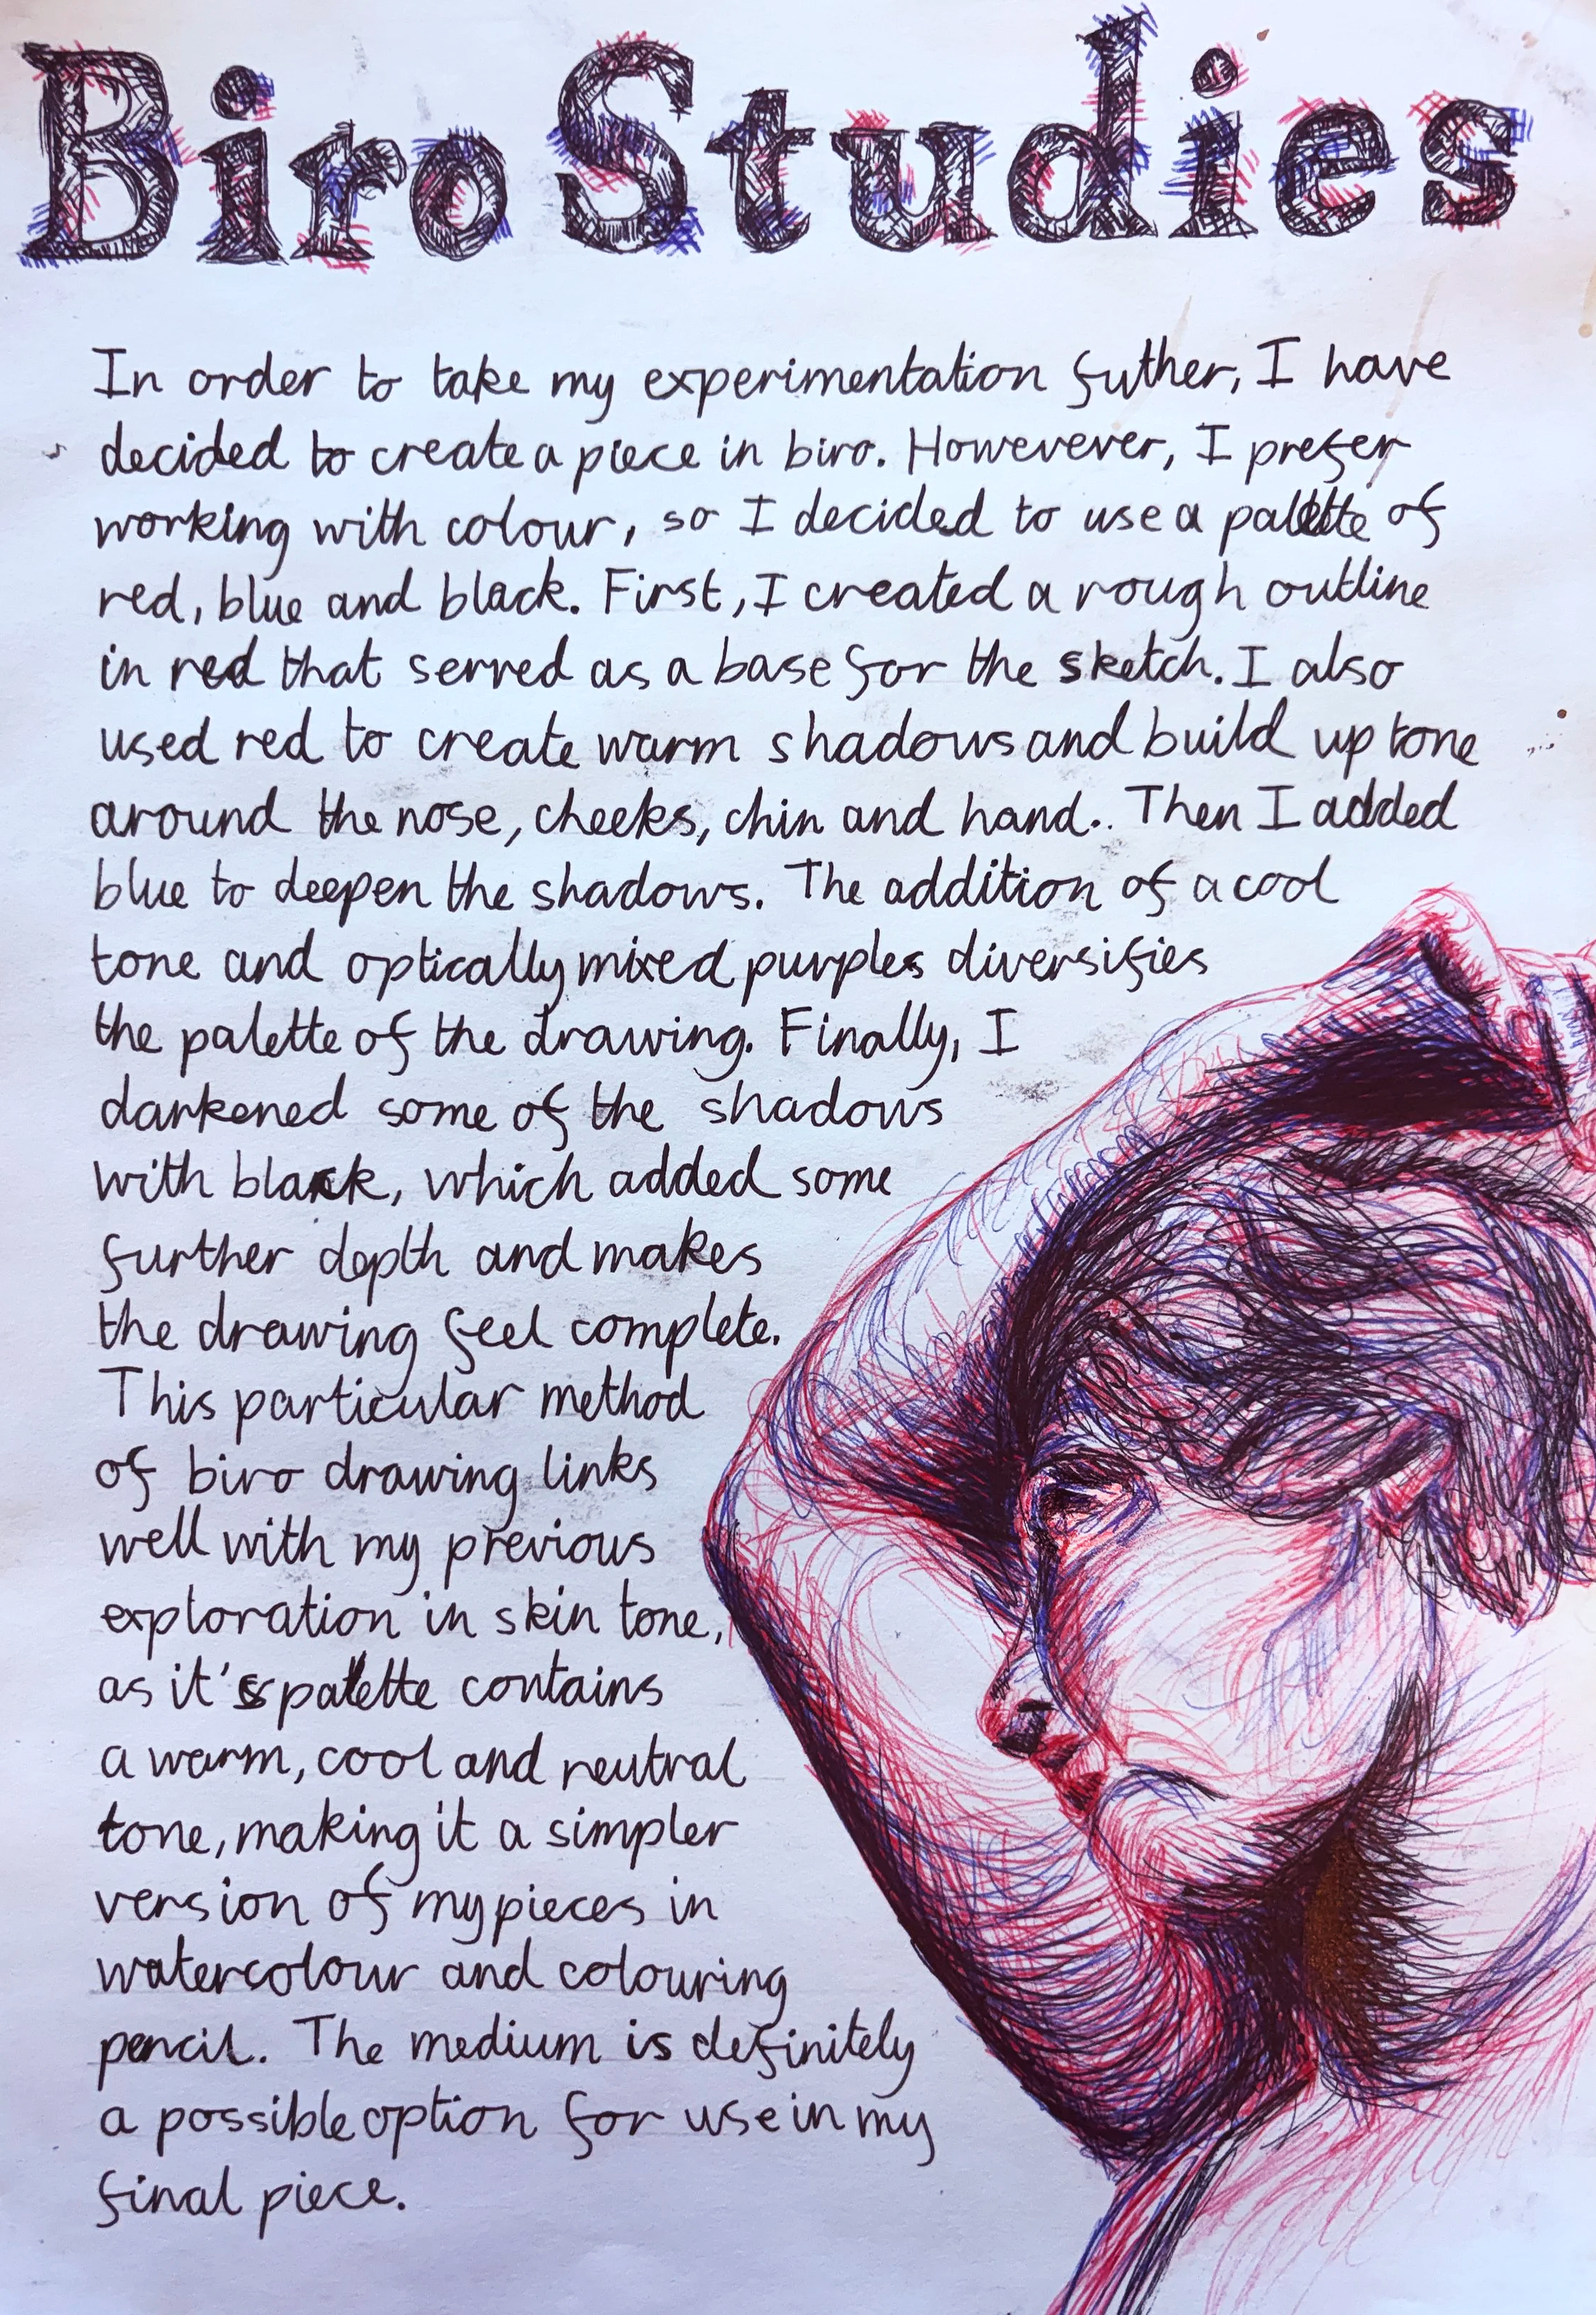 Biro Studies
In order to take my experimentation futher, I have
decided to create a piece in biro. Howevever, I prefer
working with colour, so I decided to use a palette of
red, blue and black. First, I created a rough outline
in red that served as a base for the sketch. I also
used red to create warm shadows and build up tone
around the nose, cheeks, chin and hand.. Then I added
blue to deepen the shadows. The addition of a cool
tone and optically mixed purples diversifies
the palette of the drawing. Finally, I
darkened some of the shadows
with black, which added some
further depth and makes
the drawing feel complete.
This particular method
of biro drawing links
well with my previous
exploration in skin tone,
as it's palette contains
a warm, cool and neutral
tone, making it a simpler
version of my pieces in
watercolour and colouring
pencil. The medium is definitely
a possible option for use in my
final piece.